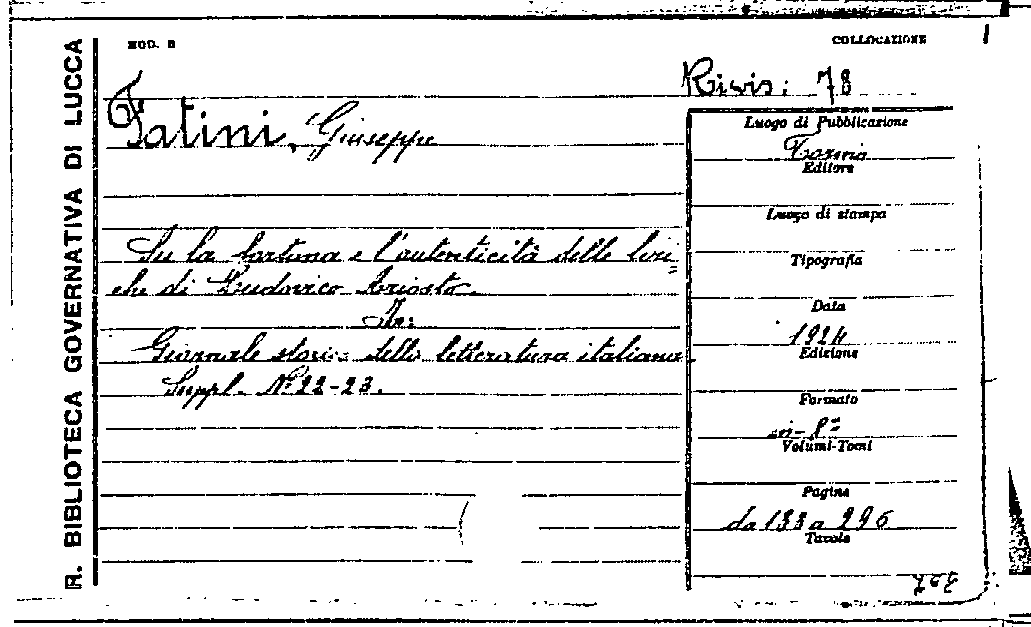 R. BIBLIOTECA GOVERNATIVA DI LUCCA
MOD. B
COLLOCAZIONE
Rivis: 78
Fatini, Giuseppe
Su la fortuna e l'autenticità delle liri=
che di Ludovico Ariosto.
In:
Giornale storico della letteratura italiana
Suppl. N° 22-23.
Luogo di Pubblicazione
Torino
Editore
Luogo di stampa
Tipografia
Data
1924
Edizione
Formato
in-8°
Volumi-Tomi
Pagine
da 133 a 296
Tavole